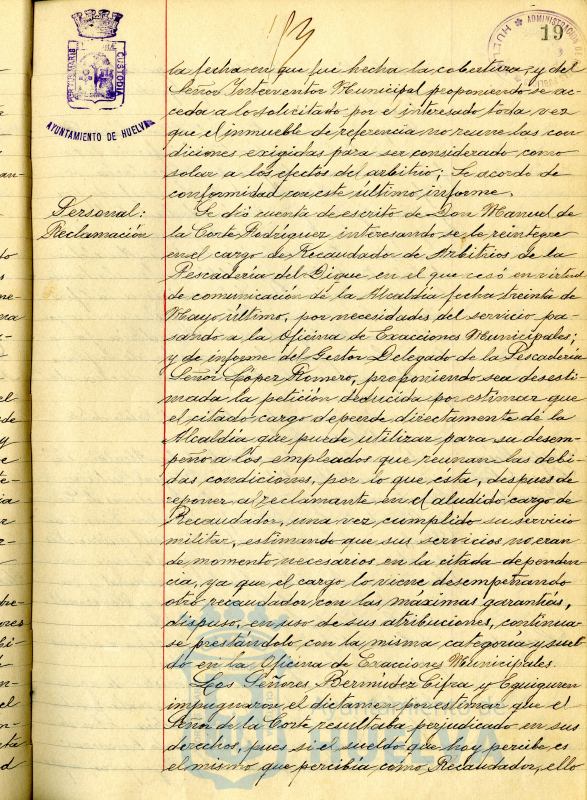 19
la fecha en que fue hecha la cobertura, y del
Señor Interventor Municipal proponiendo se ac-
ceda a lo solicitado por el interesado toda vez
que el inmueble de referencia no reune las con-
diciones exigidas para ser considerado como
solar a los efectos del arbitrio; Se acordo de
conformidad con este último informe.
Personal:
Reclamación
Se dió cuenta de escrito de Don Manuel de
la Corte Rodríguez interesando se le reintegre
en el cargo de Recaudador de Arbitrios de la
Pescadería del Dique, en el que cesó en virtud
de comunicación de la Alcaldía fecha treinta de
Mayo último, por necesidades del servicio pa-
sando a la Oficina de Exacciones Municipales;
y de informe del Gestor Delegado de la Pescadería
Señor López Romero, proponiendo sea desesti-
mada la petición deducida por estimar que
el citado cargo depende directamente de la
Alcaldía que puede utilizar para su desem-
peño a los empleados que reunan las debi-
das condiciones, por lo que ésta, despues de
reponer al reclamante en el aludido cargo de
Recaudador, una vez cumplido su servicio
militar, estimando que sus servicios no eran
de momento necesarios en la citada dependen-
cia, ya que el cargo lo viene desempeñando
otro recaudador con las máximas garantías,
dispuso, en uso de sus atribuciones, continua-
se prestándolo con la misma categoría y suel-
do en la Oficina de Exacciones Municipales.
Los Señores Bermúdez Cifra y Eguiguren
impugnaron el dictamen por estimar que el
Señor de la Corte resultaba perjudicado en sus
derechos, pues si el sueldo que hoy percibe es
el mismo que percibía como Recaudador, ello
AYUNTAMIENTO DE HUELVA
CUSTODIA
ADMINISTRACION DE
HUELVA